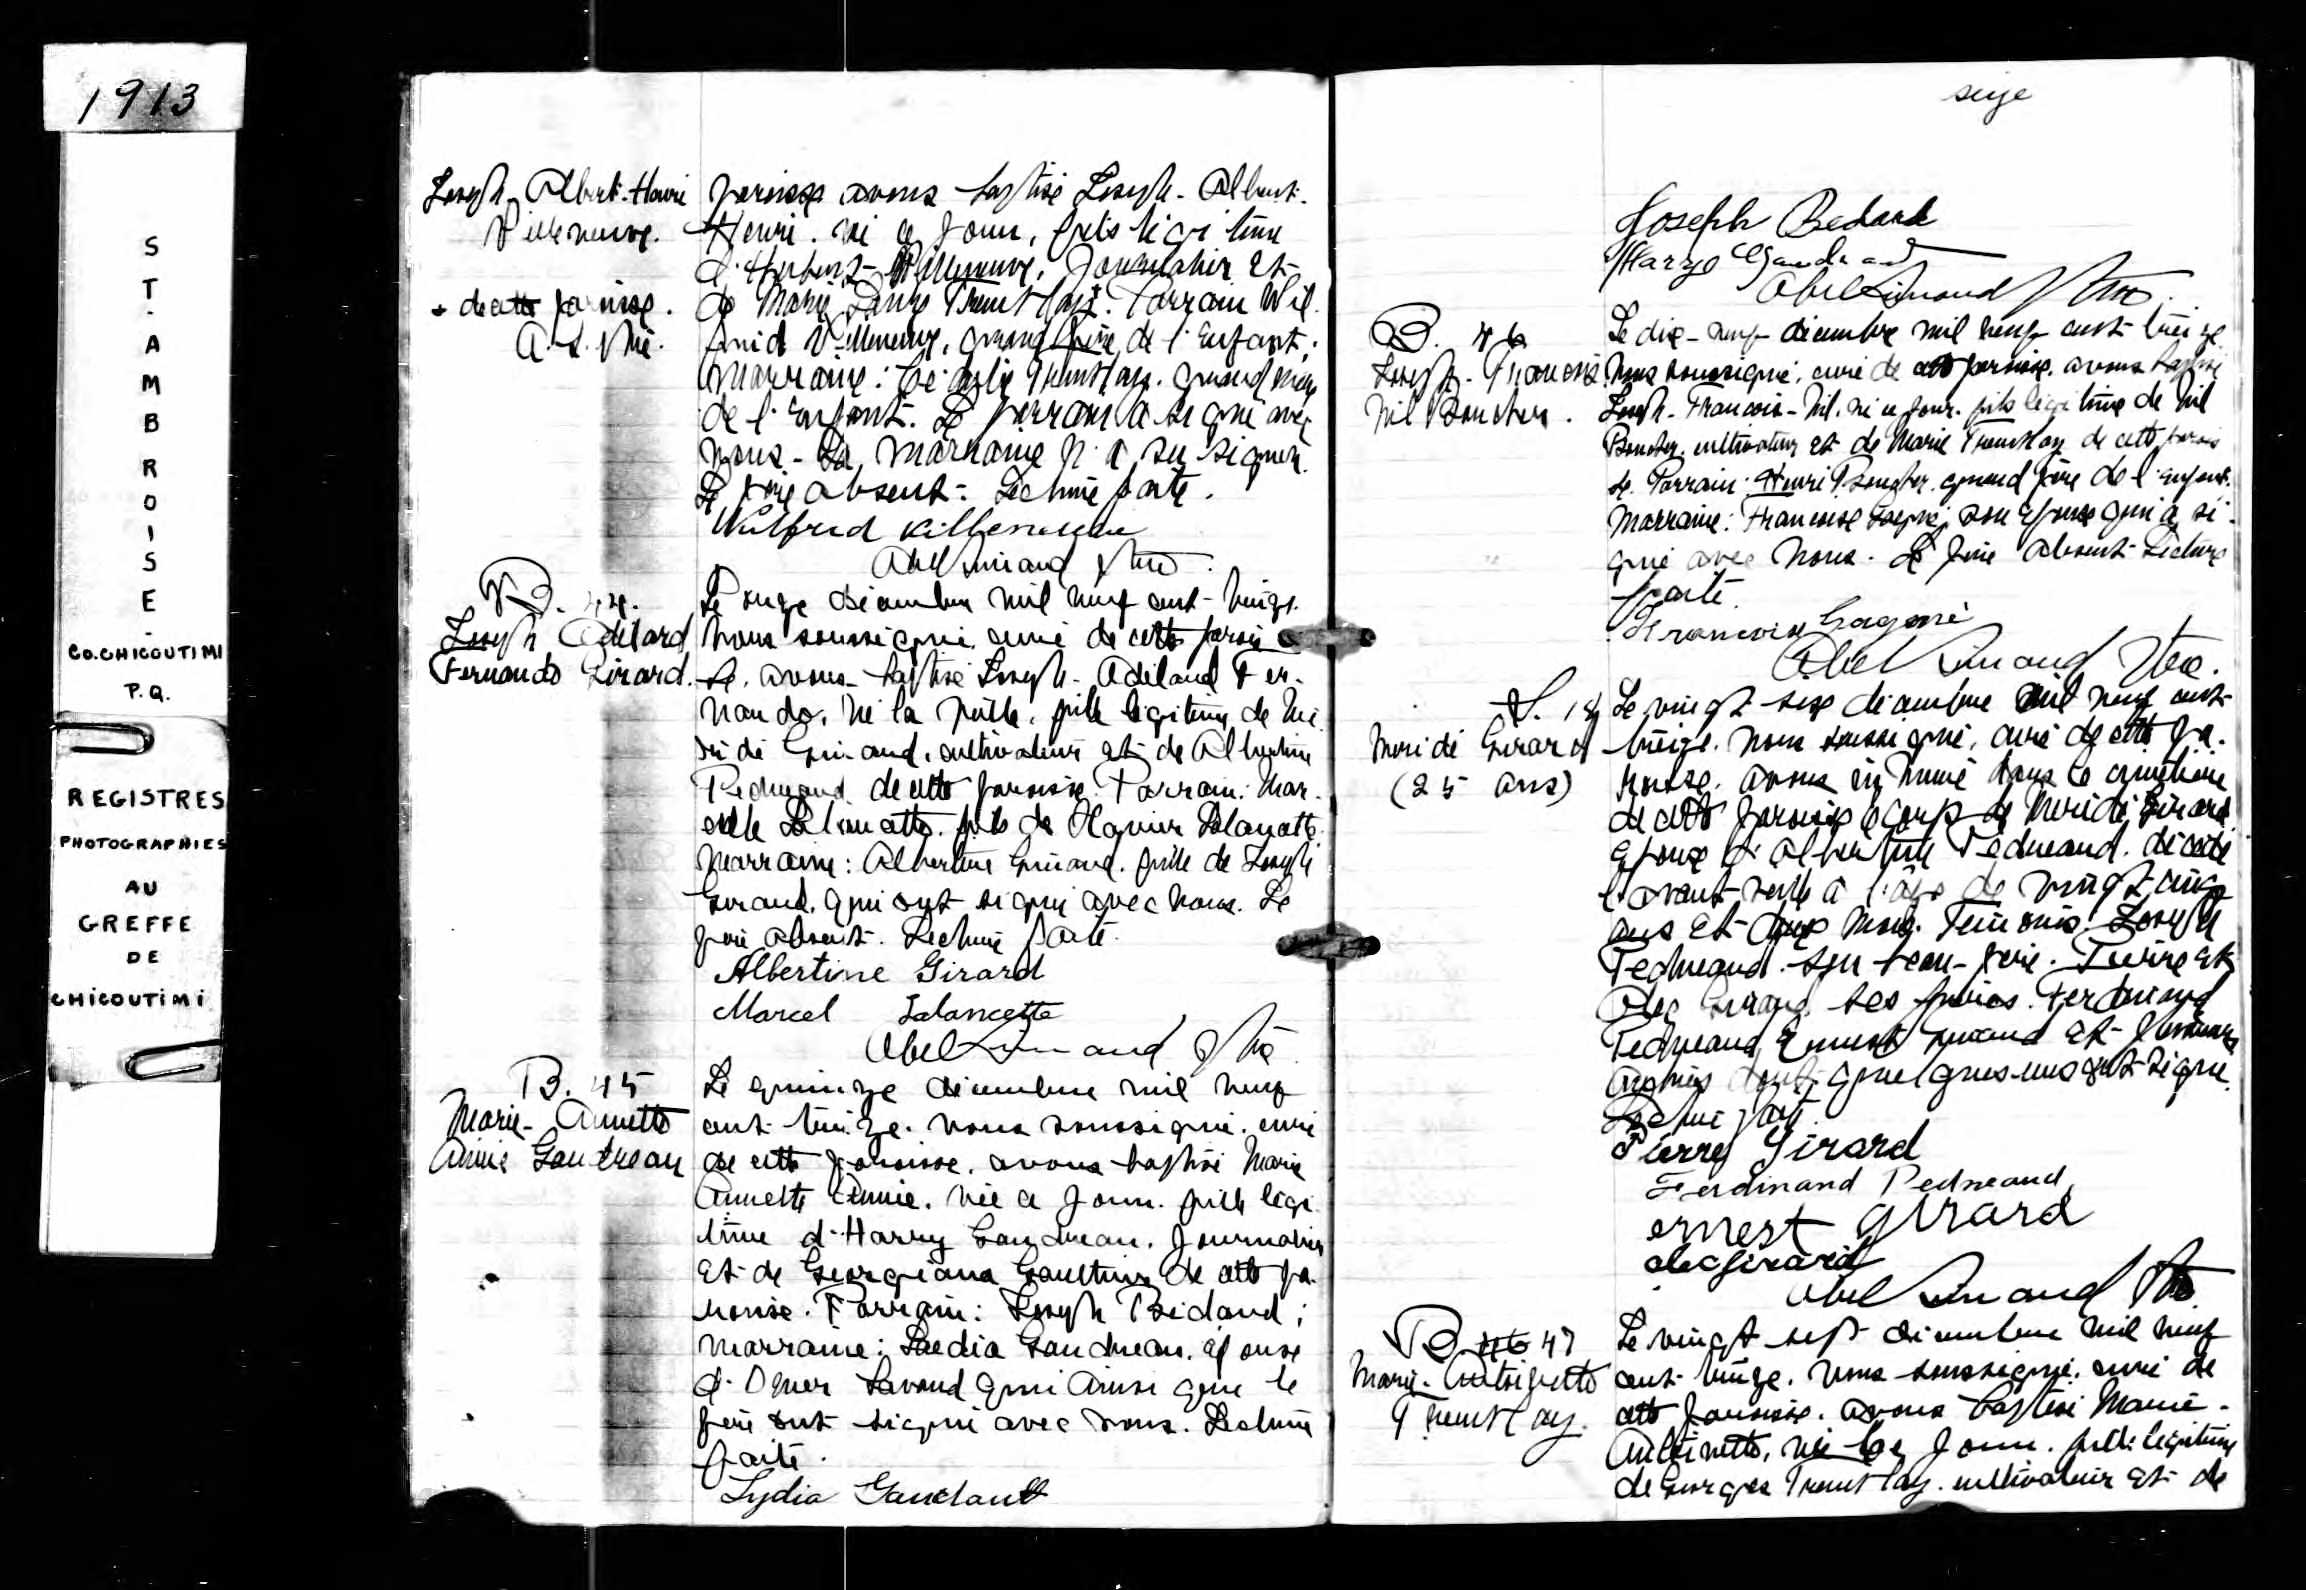 1913
ST. AMBROISE
CO. CHICOUTIMI
P.Q.
REGISTRES
PHOTOGRAPHIES
AU
GREFFE
DE
CHICOUTIMI
Joseph-Albert-Henri
Villeneuve.
+ de cette paroisse.
paroisse avons baptisé Joseph-Albert-
Henri. né ce jour, fils légitime
d'Herbert Villeneuve, journalier et
de Marie Tremblay+. Parrain Wil
frid Villeneuve, grand père de l'enfant;
Marraine: Tremblay. grand mère
de l'enfant. Le parrain a signé avec
nous - La marraine n'a su signer.
Le père absent. Lecture faite.
Wilfrid Villeneuve
Abel Simard Ptre.
B. 44.
Joseph Adélard
Fernando Girard.
Le onze décembre mil neuf cent-treize.
nous soussigné curé de cette parois
se. avons baptisé Joseph-Adélard Fer-
nando, né la veille, fils légitime de Mé
ridé Girard, cultivateur et de Albertine
Pedneaud de cette paroisse. Parrain: Mar-
celle Lalancette. fils de Lalancette.
Marraine: Albertine Girard. fille de Joseph
Girard, qui ont signé avec nous. Le
père absent. Lecture faite.
Albertine Girard
Marcel Lalancette
Abel Simard Ptre
B. 45
Marie-Annette
Annie Gaudreau
Le quinze décembre mil neuf
cent treize. nous soussigné. curé
de cette paroisse. avons baptisé Marie
Annette Annie. née ce jour. fille légi
time d'Harry Gaudreau. journalier
et de Georgiana Gauthier de cette pa-
roisse. Parrain: Joseph Bédard;
marraine: Laedia Gaudreau. épouse
d'Omer Savard qui ainsi que le
père ont signé avec nous. Lecture
faite.
Lydia Gaudault
seize
Joseph Bedard
Harry Gaudreau
Abel Simard Ptre.
B. 46
Joseph-François
Nil Boucher.
Le dix-neuf décembre mil neuf cent-treize
nous soussigné, curé de cette paroisse. avons baptisé
Joseph-François-Nil. né ce jour. fils légitime de Nil
Boucher. cultivateur et de Marie Tremblay de cette parois
se. Parrain: Henri Boucher. grand père de l'enfant.
Marraine: Françoise Gagné; son épouse qui a si-
gné avec nous. Le père absent. Lecture
faite.
Gagné
Abel Simard Ptre.
S. 18
Meridé Girard
(25 ans)
Le vingt-six décembre mil neuf cent-
treize. nous soussigné, curé de cette pa-
roisse. avons inhumé dans le cimetière
de cette paroisse le corps de Meridé Girard
époux d'Albertine Pedneaud. décédé
l'avant-veille à l'âge de vingt-cinq
ans et mois. Témoins: Joseph
Pedneaud. son beau-père. Pierre et
Alec Girard. ses frères. Ferdinand
Pedneaud, Ernest Girard et plusieurs
autres dont quelques-uns ont signé.
Lecture faite.
Pierre Girard
Ferdinand Pedneaud
ernest Girard
alec Girard
Abel Simard Ptre
B. 46 47
Marie-Antoinette
Tremblay.
Le vingt sept décembre mil neuf
cent-treize. nous soussigné. curé de
cette paroisse. avons baptisé Marie-
Antoinette, née ce jour. fille légitime
de Georges Tremblay. cultivateur et de